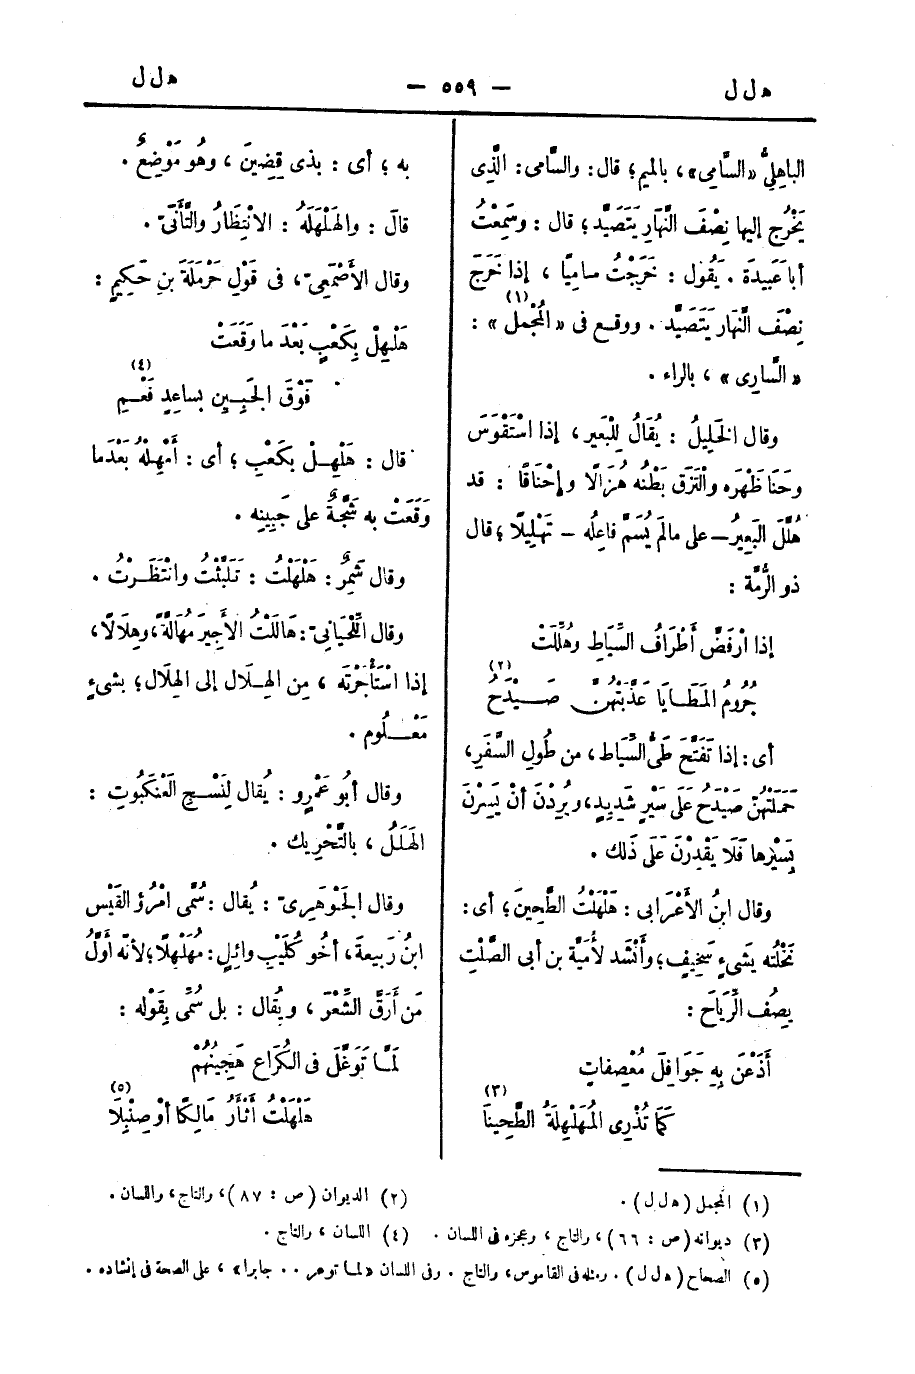 هلل
— ٥٥٩ —
هلل
الباهِلِيُّ «السَّامِي»، بالميم؛ قال: والسَّامى: الَّذِى
يَخْرُج إليها نِصْفَ النَّهارِ يَتَصَيَّد؛ قال: وسَمِعْتُ
أباعَبيدَة. يَقُول: خَرَجْتُ سامِيًا، إذا خَرَجَ
نِصْفَ النَّهارِ يَتَصَيَّد. ووقع فى «المُجْمل»(١):
«السَّارِى»، بالراء.
وقال الخَلِيلُ: يُقَالُ لِلْبَعيرِ، إذا اسْتَقْوَسَ
وحَنَا ظَهْرَه والْتَزَق بَطْنُه هُزَالًا وإحْنَاقًا: قد
هُلِّلَ البَعِيرُ—على مالَم يُسَمَّ فاعِلُه – تَهْلِيلًا؛ قال
ذو الرُّمَّة:
إذا ارْفَضَّ أَطْرَافُ السِّيَاطِ وهُلِّلَتْ
جُرُومُ المَطَايَا عَذَّبَتْهُنّ صَيْدَحُ (٢)
أى: إذا تَفَتَّحَ طَىُّ السِّيَاط، من طُولِ السَّفَرِ،
حَمَلَتْهُنّ صَيْدَحُ عَلَى سَيْرٍ شَدِيدٍ، ويُرِدْنَ أنْ يَسِرْنَ
بِسَيْرِها فَلَا يَقْدِرْنَ عَلَى ذَلك.
وقال ابنُ الأَعْرَابى: هَلْهَلْتُ الطَّحِينَ؛ أى:
نَخَلْتُه بشىءٍ سَخِيفٍ؛ وأَنْشَد لأُمَيَّة بن أبى الصَّلْت
يصُف الرِّيَاحَ:
أَذَعْنَ بِهِ جَوَافِلَ مُعْصِفاتٍ
كَمَا تُذْرِى المُهَلْهِلَةُ الطَّحِينَا (٣)
به؛ أى: بذى قِضِينَ، وهُو مَوْضِعٌ.
قالَ: والهَلْهَلَةُ: الانْتِظَارُ والتَّأَنِّى.
وقال الأَصْمَعِىّ، فى قَوْلِ حَرْمَلَةَ بنِ حَكِيمٍ:
هَلْهِلْ بِكَعْبٍ بَعْدَ ما وَقَعَتْ
فَوْقَ الجَبِينِ بساعِدٍ فَعْمِ (٤)
قال: هَلْهِلْ بكَعْبٍ؛ أى: أَمْهِلْهُ بَعْدَما
وَقَعَتْ به شَجَّةٌ على جَبِينِه.
وقال شَمِرٌ: هَلْهَلْتُ: تَلَبَّثْتُ وانْتَظَرْتُ.
وقال اللِّحْيَانِىّ: هَالَلْتُ الأجِيرَ مُهَالَّةً، وهِلَالًا،
إذا اسْتَأْجَرْتَه، مِن الهِلَال إلى الهِلَال؛ بشىءٍ
مَعْلُوم.
وقال أبُو عَمْرٍو: يُقال لِنَسْجِ العَنْكَبُوتِ:
الهَلَلُ، بالتَّحْرِيك.
وقال الجَوْهَرِىّ: يُقال: سُمِّى امْرُؤ القَيْس
ابنُ رَبيعةَ، أخُو كُلَيْبِ وائِلٍ: مُهَلْهِلًا؛ لأنّه أوَّلُ
مَن أَرَقَّ الشِّعْرَ، ويُقال: بل سُمِّى بِقَوْلِه:
لَمَّا تَوَغَّلَ فى الكُرَاعِ هَجِينُهُمْ
هَلْهَلْتُ أَثْأَرُ مَالِكًا أوْ صِنْبِلَا (٥)
(١) المجمل (هلل).
(٢) الديوان (ص: ٨٧)، والتاج، واللسان.
(٣) ديوانه (ص: ٦٦)، والتاج، وعجزه فى اللسان.
(٤) اللسان، والتاج.
(٥) الصحاح (هلل). ومثله فى القاموس، والتاج. وفى اللسان «لما توعر .. جابرا»، على الصحة فى إنشاده.